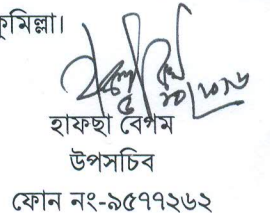 কুমিল্লা।
হাফছা বেগম
উপসচিব
ফোন নং-৯৫৭৭২৬২